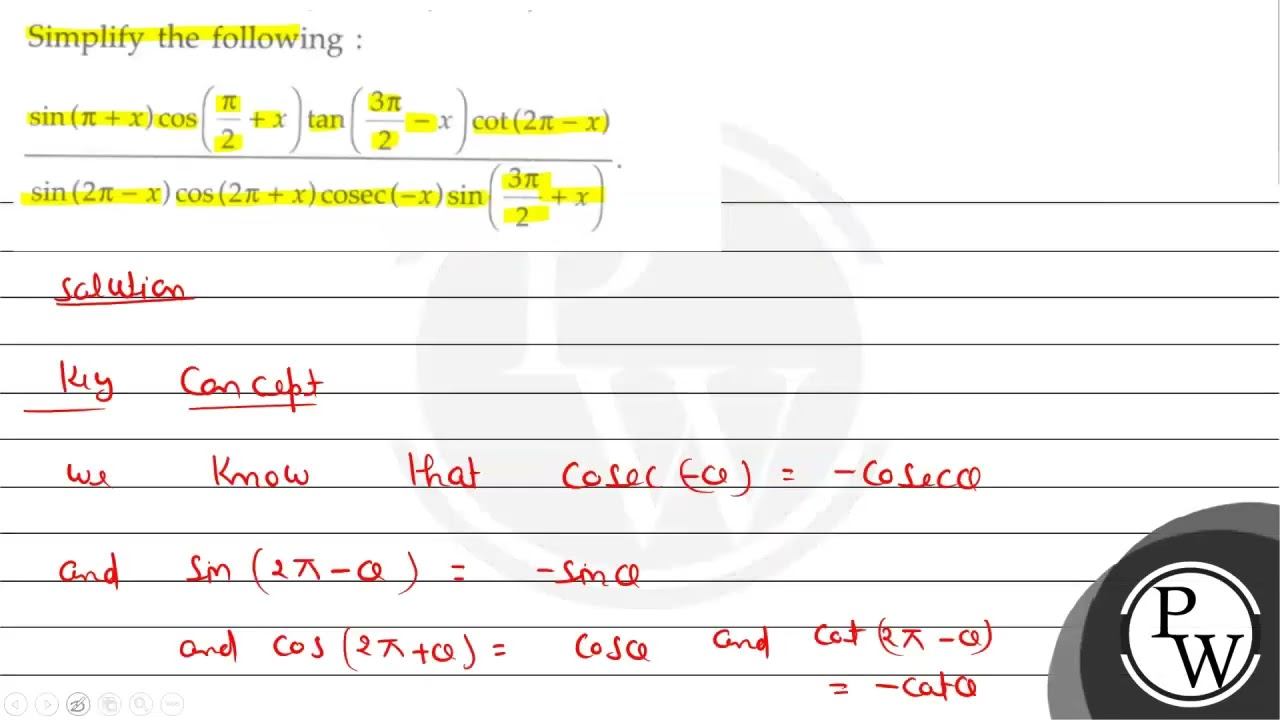 Simplify the following :
sin (π + x) cos (π/2 + x) tan (3π/2 − x) cot (2π − x)
sin (2π − x) cos (2π + x) cosec (−x) sin (3π/2 + x) .
Solution
Key Concept
we know that cosec (-θ) = -cosecθ
and sin (2π-θ) = -sinθ
and cos (2π+θ) = cosθ and cot (2π-θ)
= -cotθ
P
W
P
W